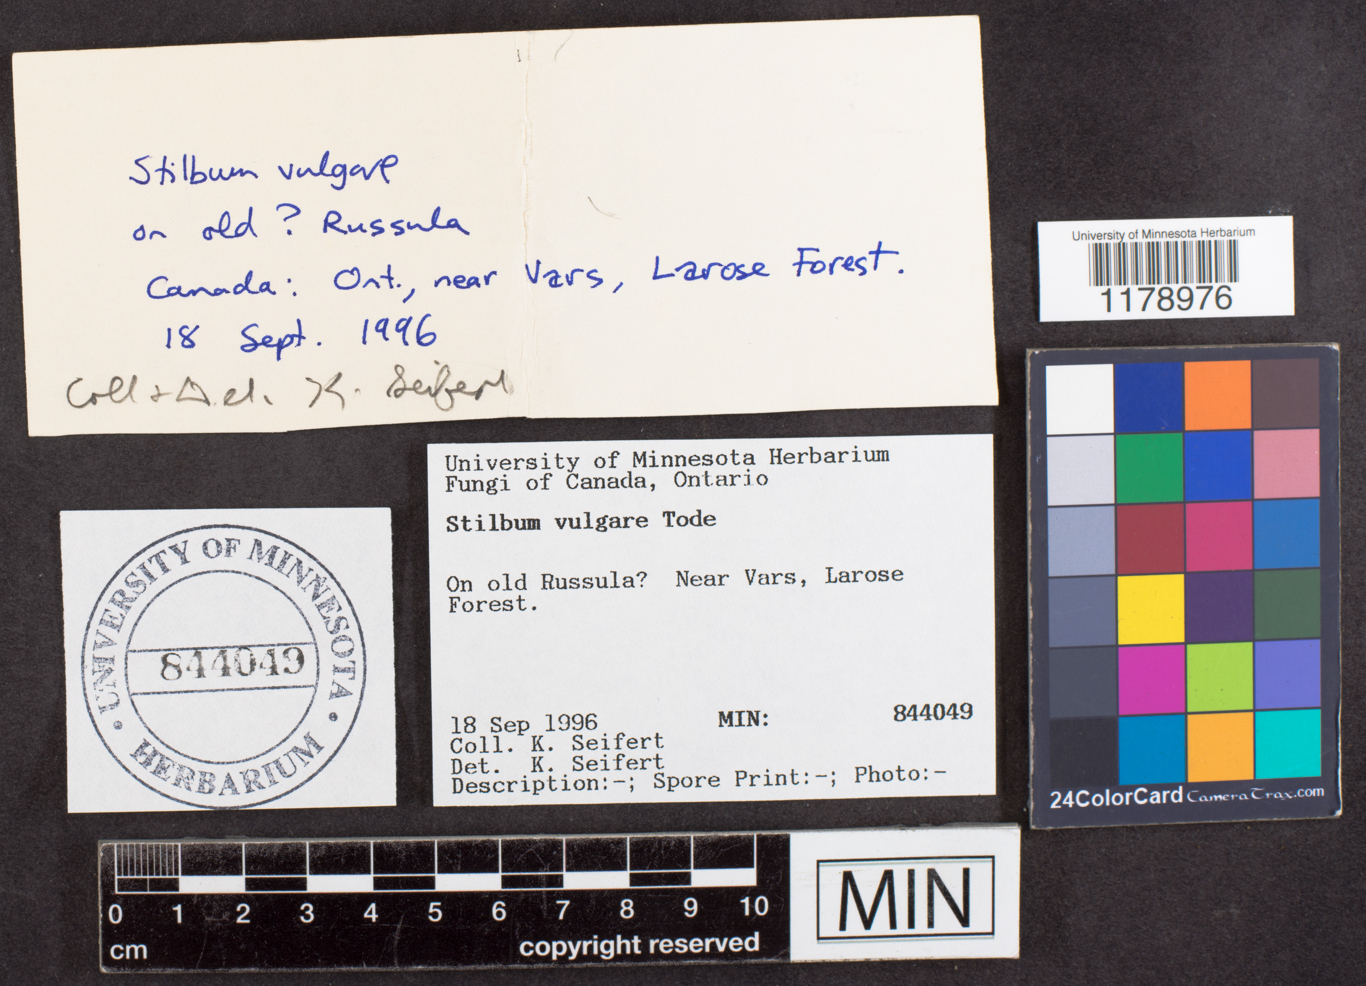 Stilbum vulgare
on old ? Russula
Canada: Ont., near Vars, Larose Forest.
18 Sept. 1996
Coll + Det. K. Seifert
University of Minnesota Herbarium
1178976
University of Minnesota Herbarium
Fungi of Canada, Ontario
Stilbum vulgare Tode
On old Russula? Near Vars, Larose
Forest.
18 Sep 1996 MIN: 844049
Coll. K. Seifert
Det. K. Seifert
Description:-; Spore Print:-; Photo:-
UNIVERSITY OF MINNESOTA
844049
HERBARIUM
24ColorCard CameraTrax.com
0 1 2 3 4 5 6 7 8 9 10
cm copyright reserved
MIN